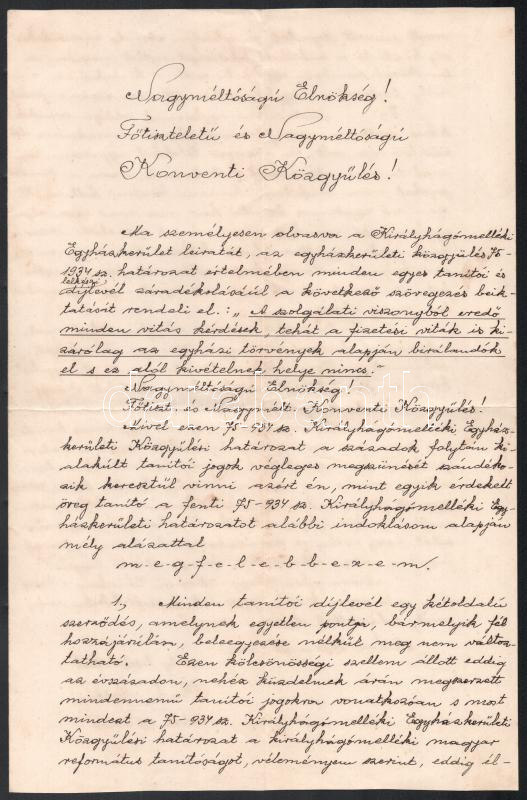 Nagyméltóságú Elnökség!
Főtiszteletű és Nagyméltóságú
Konventi Közgyűlés!
Ma személyesen olvasva a Királyhágómelléki
Egyházkerület leiratát, az egyházkerületi közgyülés 75-
1934 sz. határozat értelmében minden egyes tanitói és
lelkészi
díjlevél záradékolásáúl a következő szövegezés beik-
tatását rendeli el.: „A szolgálati viszonyból eredő
minden vitás kérdések, tehát a fizetési viták is ki-
zárólag az egyházi törvények alapján birálandók
el s ez alól kivételnek helye nincs."
Nagyméltóságú Elnökség!
Főtiszt. és Nagymélt. Konventi Közgyűlés!
Mivel ezen 75-934 sz. Királyhágómelléki Egyház-
kerületi Közgyülési határozat a századok folytán ki-
alakúlt tanitói jogok végleges megszünését szándéko-
zik keresztül vinni azért én, mint egyik érdekelt
öreg tanitó a fenti 75-934 sz. Királyhágómelléki Egy-
házkerületi határozatot alábbi indoklásom alapján
mély alázattal
m-e-g-f-e-l-e-b-b-e-z-e-m.
1., Minden tanitói díjlevél egy kétoldalú
szerződés, amelynek egyetlen pontja, bármelyik fél
hozzájárulán, beleegyezése nélkül meg nem változ-
tatható. Ezen kölcsönösségi szellem állott eddig
az évszázadon, nehéz küzdelmek árán megszerzett
mindennemű tanitói jogokra vonatkozóan s most
mindezt a 75-934 sz. Királyhágómelléki Egyházkerületi
Közgyülési határozat a királyhágómelléki magyar
református tanitóságot, véleményem szerint, eddig él-